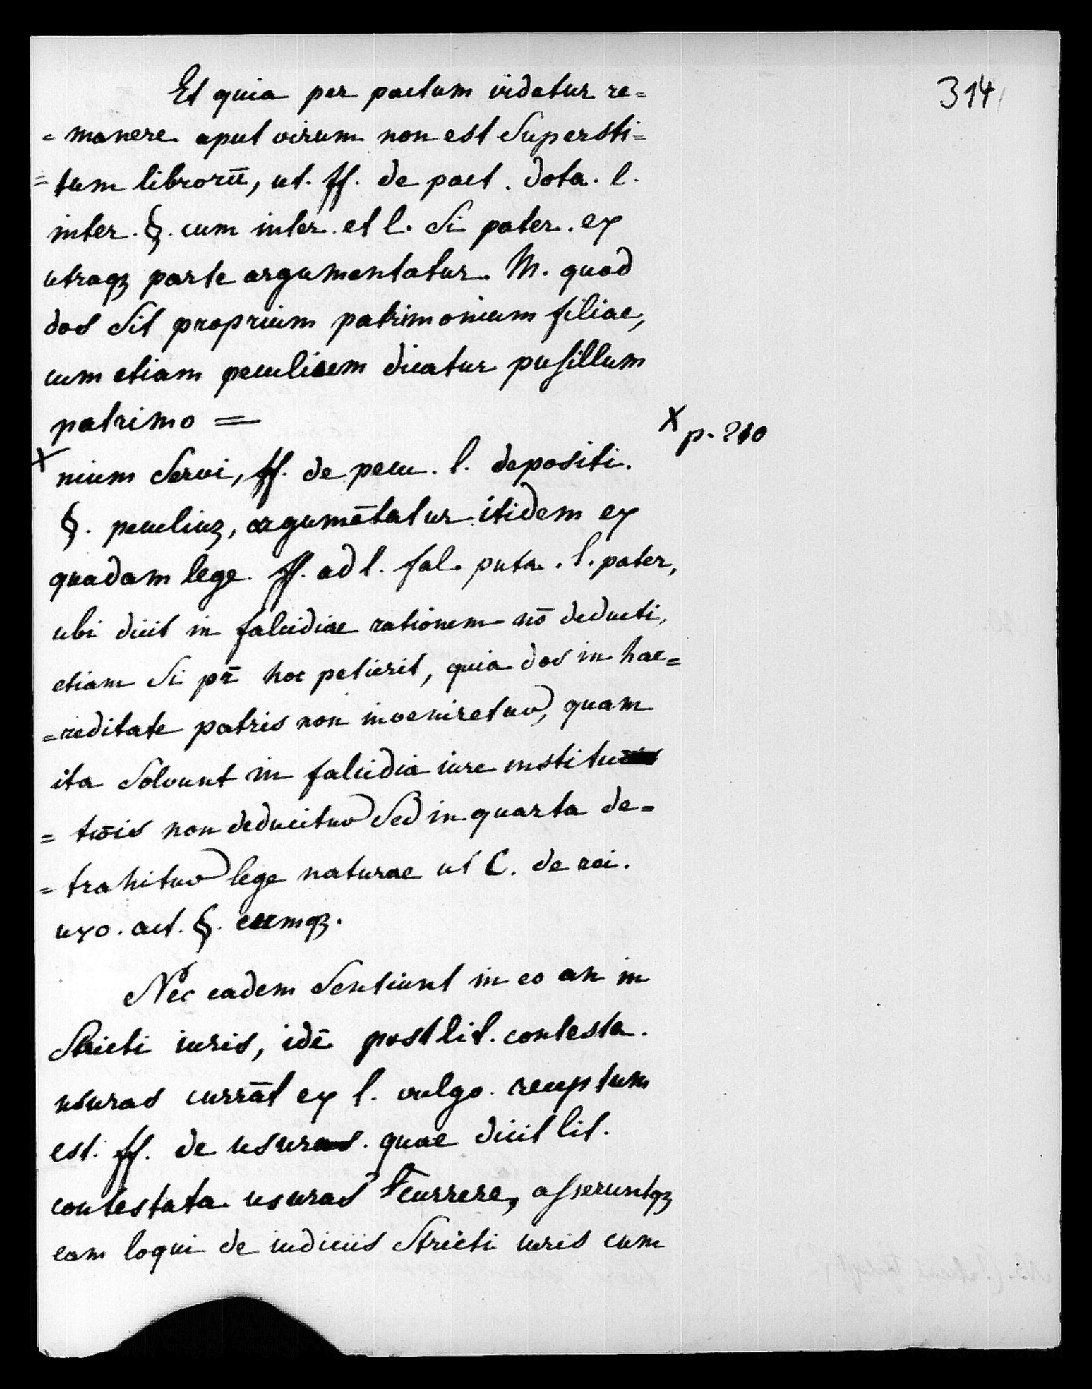 314
Et quia per pactum videtur re=
= manere aput virum non est Supersti=
= tum librorū, ut. ff. de pact. dota. l.
inter. §. cum inter. et l. Si pater. ex
utraqz parte argumentatur. M. quod
dos Sit proprium patrimonium filiae,
cum etiam peculium dicatur pusillum
patrimo =
x p. 210
x nium Servi, ff. de pecu. l. depositi.
§. peculiuz, argumētatur itidem ex
quadam lege ff. ad l. fal. puta. l. pater,
ubi dicit in falcidiae rationem nō deducti,
etiam Si pr̄ hoc petierit, quia dos in hae=
= reditate patris non inveniretur, quam
ita Solvunt in falcidia iure institu
= tiōis non deducitur Sed in quarta de=
= trahitur lege naturae ut C. de rei.
uxo. act. §. cumqz.
Nec eadem Sentiunt in eo an in
Stricti iuris, idē post lit. contesta.
usuras currāt ex l. vulgo. receptum
est. ff. de usuras. quae dicit lit.
contestata usuras currere, asseruntqz
eam loqui de iudiciis Stricti iuris cum